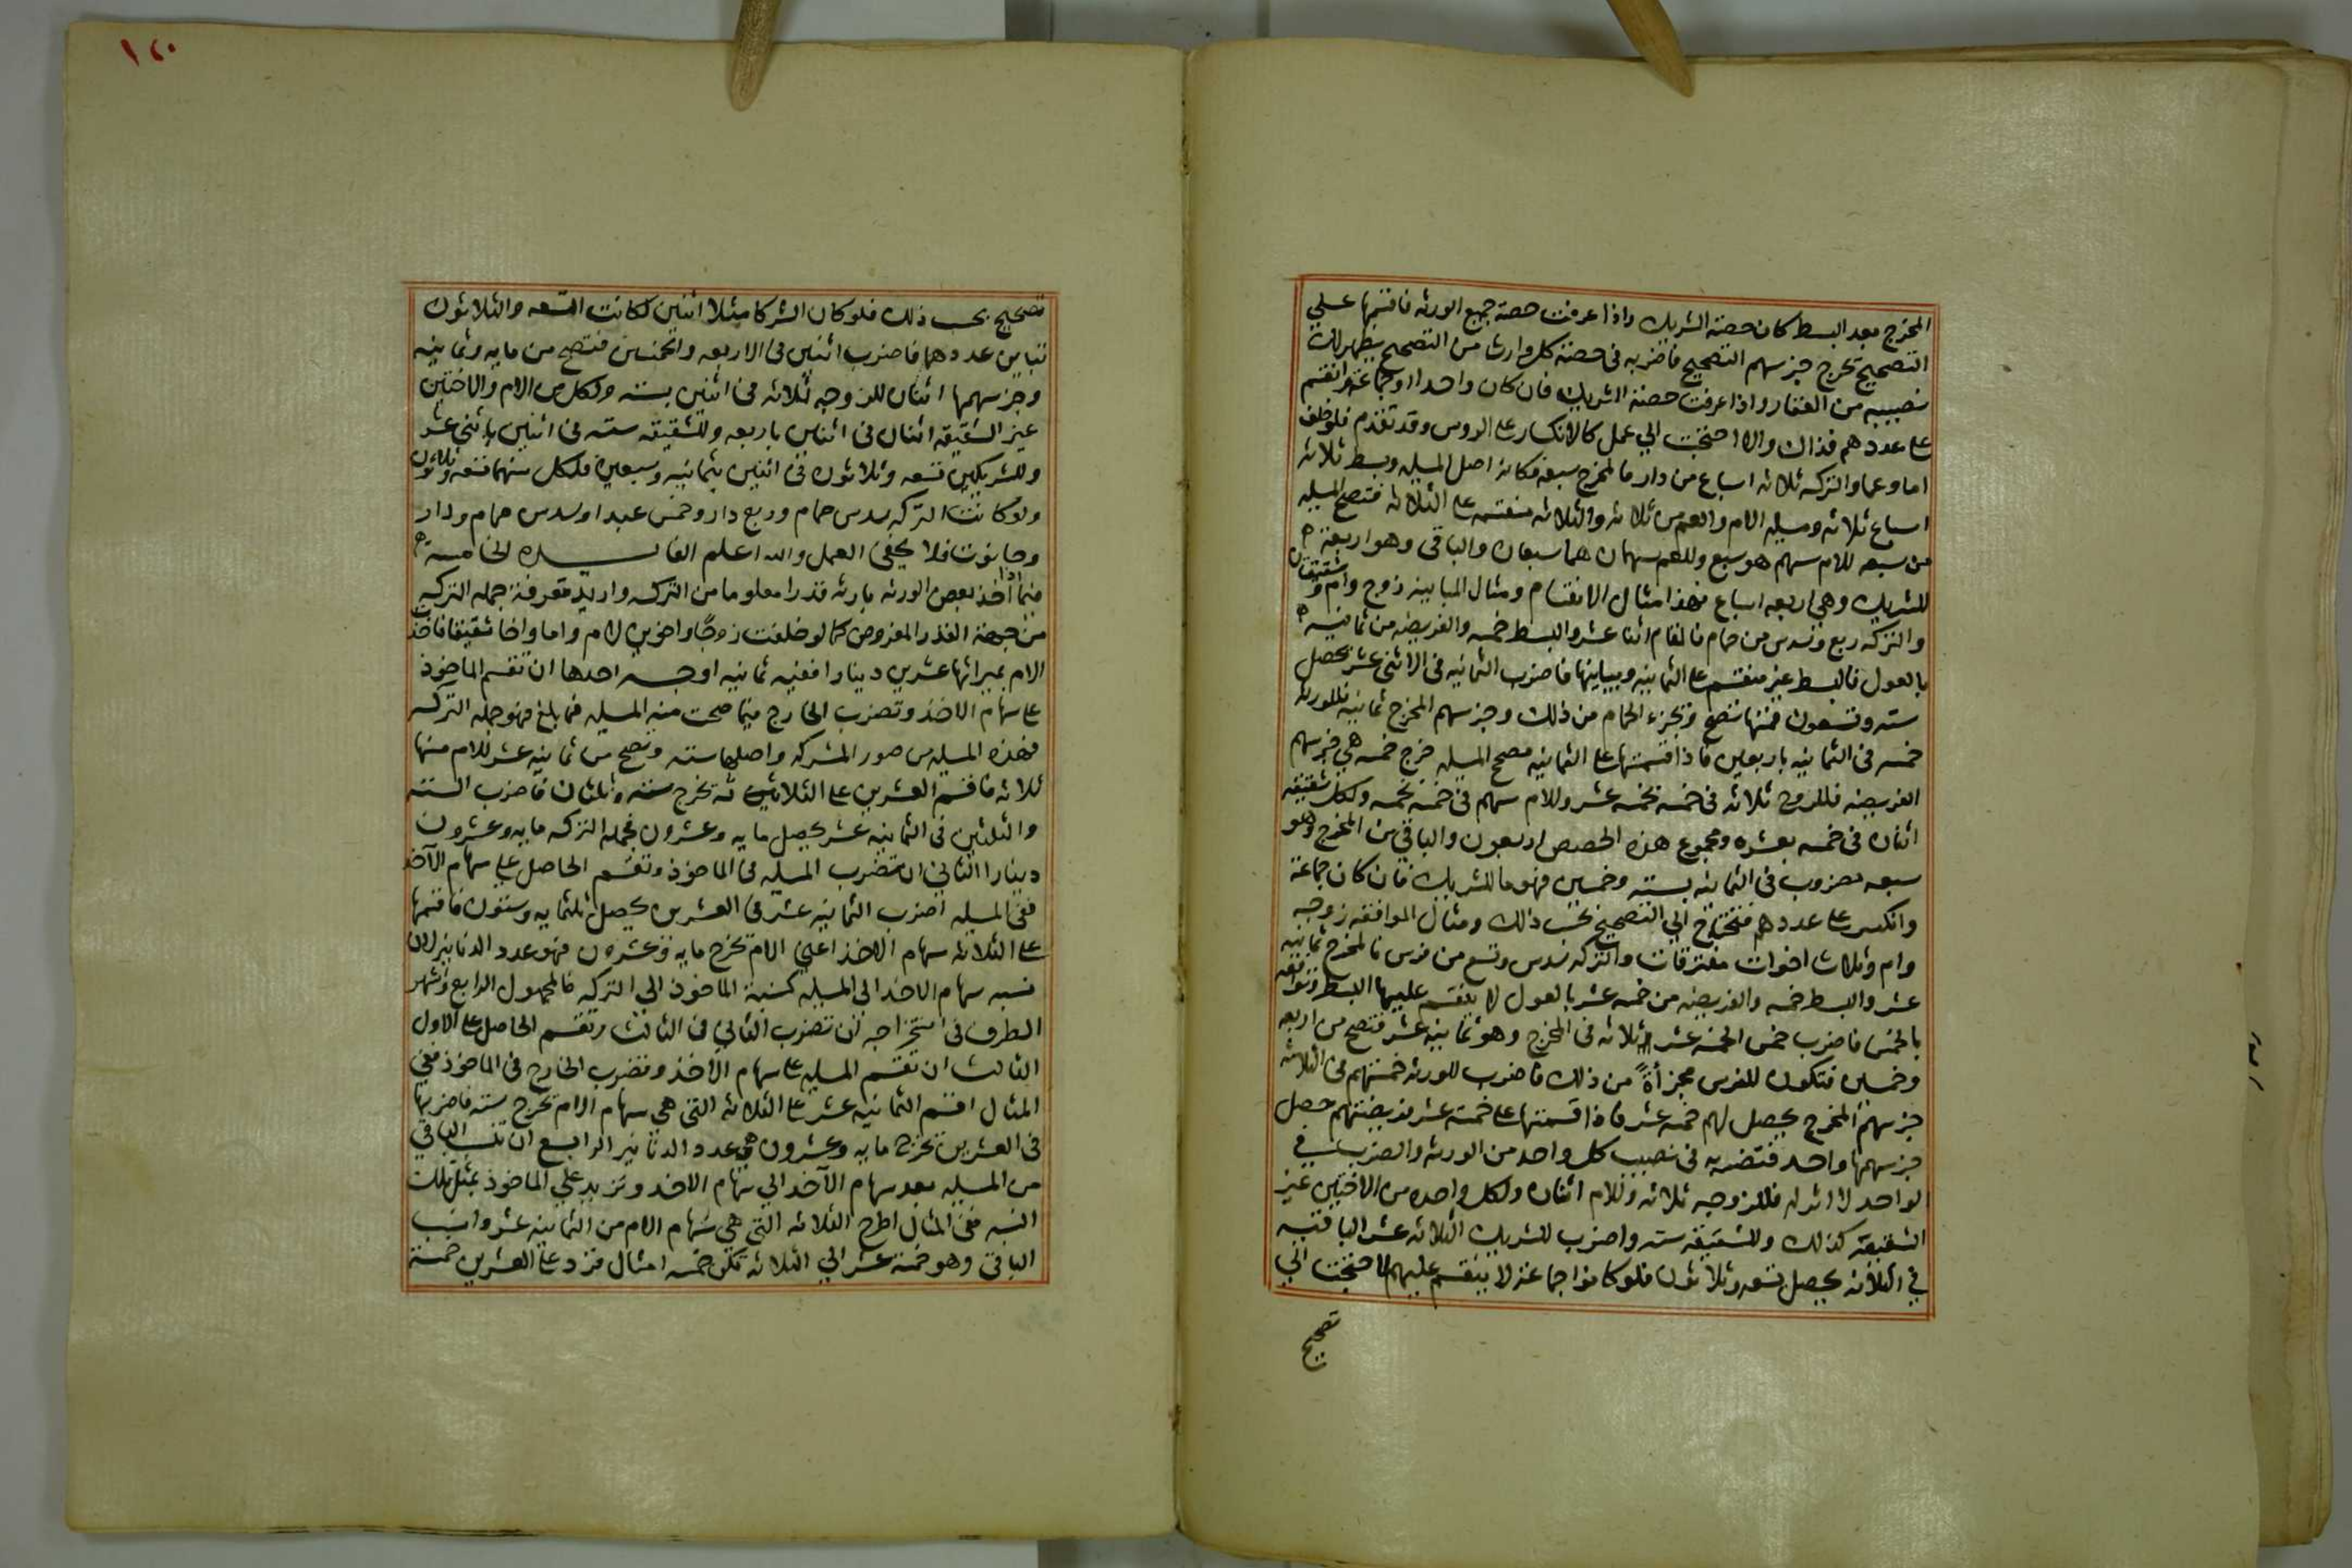 المخرج بعد البسط كان حصة الشريك واذا عرفت حصة جميع الورثه فاقسمها علي
التصحيح تخرج جز سهم التصحيح فاضربه فى حصة كل وارث من التصحيح يظهر لك
نصيبه من العقار واذا عرفت حصة الشريك فان كان واحدا او جماعة وانقسم
على عددهم فذاك والا احتجت الي عمل كالانكسار على الروس وقد تقدم فلو خلف
اما وعما والتركه ثلاثه اسباع من دار فالمخرج سبعه فكانه اصل المسيله وبسط ثلاثه
اسباع ثلاثه ومسيله الام والعم من ثلاثه والثلاثه منقسمه على الثلاثه فتصح المسيله
من سبعه للام سهم هو سبع وللعم سهمان هما سبعان والباقى وهو اربعة
للشريك وهي اربعه اسباع فهذا مثال الانقسام ومثال المباينه زوج وام وشقيقتان
والتركه ربع وسدس من حمام فالمقام اثنا عشر والبسط خمسه والفريضه من ثمانيه
بالعول فالبسط غير منقسم على الثمانيه ويباينها فاضرب الثمانيه فى الاثنى عشر يحصل
سته وتسعون فمنها تصح وتجزء الحمام من ذلك وجز سهم المخرج ثمانيه فللورثه
خمسه فى الثمانيه باربعين فاذا قسمتها على الثمانيه مصحح المسيله خرج خمسه هي جز سهم
الفريضه فللزوج ثلاثه فى خمسه بخمسه عشر وللام سهم فى خمسه بخمسه ولكل شقيقه
اثنان فى خمسه بعشره ومجموع هذه الحصص اربعون والباقي من المخرج وهو
سبعه مضروب فى الثمانيه بسته وخمسين فهو ما للشريك فان كان جماعة
وانكسر على عددهم فتحتاج الي التصحيح بحسب ذلك ومثال الموافقه زوجه
وام وثلاث اخوات مفترقات والتركه سدس وتسع من فرس فالمخرج ثمانيه
عشر والبسط خمسه والفريضه من خمسه عشر بالعول لا ينقسم عليها البسط وتوافقه
بالخمس فاضرب خمس الخمسه عشر ثلاثه فى المخرج وهو ثمانيه عشر فتصح من اربعه
وخمسين فتكون للفرس مجزأة من ذلك فاضرب للورثه خمستهم فى الثلاثه
جز سهم المخرج يحصل لهم خمسه عشر فاذا قسمتها على خمسة عشر فريضتهم حصل
جز سهمها واحد فتضربه فى نصيب كل واحد من الورثه والضرب في
الواحد لا اثر له فللزوجه ثلاثه وللام اثنان ولكل واحده من الاختين غير
الشقيقة كذلك وللشقيقة سته واضرب للشريك الثلاثه عشر الباقيه
في الثلاثه يحصل تسعه وثلاثون فلو كانوا جماعة لا ينقسم عليهم لاحتجت الي
تصحيح
١٢٠
تصحيح بحسب ذلك فلو كان الشركا مثلا اثنين لكانت التسعه والثلاثون
تباين عددهما فاضرب اثنين فى الاربعه والخمسين فتصح من مايه وثمانيه
وجز سهمها اثنان للزوجه ثلاثه فى اثنين بسته ولكل من الام والاختين
غير الشقيقه اثنان فى اثنين باربعه وللشقيقه سته فى اثنين باثني عشر
وللشريكين تسعه وثلاثون فى اثنين بثمانيه وسبعين فلكل منهما تسعه وثلاثون
ولو كانت التركه سدس حمام وربع دار وخمس عبد او سدس حمام ودار
وحانوت فلا يخفى العمل والله اعلم الفايده الخامسة
فيما اذا اخذ بعض الورثه بارثه قدرا معلوما من التركه واريد معرفة جمله التركه
من جهة القدر المفروض كما لو خلفت زوجا واخوين لام واما واخا شقيقا فاخذت
الام بميراثها عشرين دينارا ففيه ثمانيه اوجه احدها ان تقسم الماخوذ
على سهام الاخذ وتضرب الخارج فيما صحت منه المسيله فما بلغ فهو جمله التركه
فهذه المسيله من صور المشركه واصلها سته وتصح من ثمانيه عشر للام منها
ثلاثه فاقسم العشرين على الثلاثه تخرج سته وثلثان فاضرب الستة
والثلثين فى الثمانيه عشر يحصل مايه وعشرون فجمله التركه مايه وعشرون
دينارا الثاني ان تضرب المسيله فى الماخوذ وتقسم الحاصل على سهام الآخذ
ففى المسيله اضرب الثمانيه عشر فى العشرين يحصل ثلثمايه وستون فاقسمها
على الثلاثه سهام الاخذ اعني الام تخرج مايه وعشرون فهو عدد الدنانير لان
نسبه سهام الاخذ الى المسيله كنسبة الماخوذ الي التركه فالمجهول الرابع واشهر
الطرق فى استخراجه ان تضرب الثاني فى الثالث وتقسم الحاصل على الاول
الثالث ان تقسم المسيله على سهام الاخذ وتضرب الخارج فى الماخوذ ففي
المثال اقسم الثمانيه عشر على الثلاثه التى هي سهام الام تخرج سته فاضربها
فى العشرين تخرج مايه وعشرون هي عدد الدنانير الرابع ان تنسب الباقي
من المسيله بعد سهام الآخذ الي سهام الاخذ وتزيد علي الماخوذ بمثل تلك
النسبه ففى المثال اطرح الثلاثه التى هي سهام الام من الثمانيه عشر وانسب
الباقى وهو خمسة عشر الي الثلاثه تكن خمسه امثال فزد على العشرين خمسة